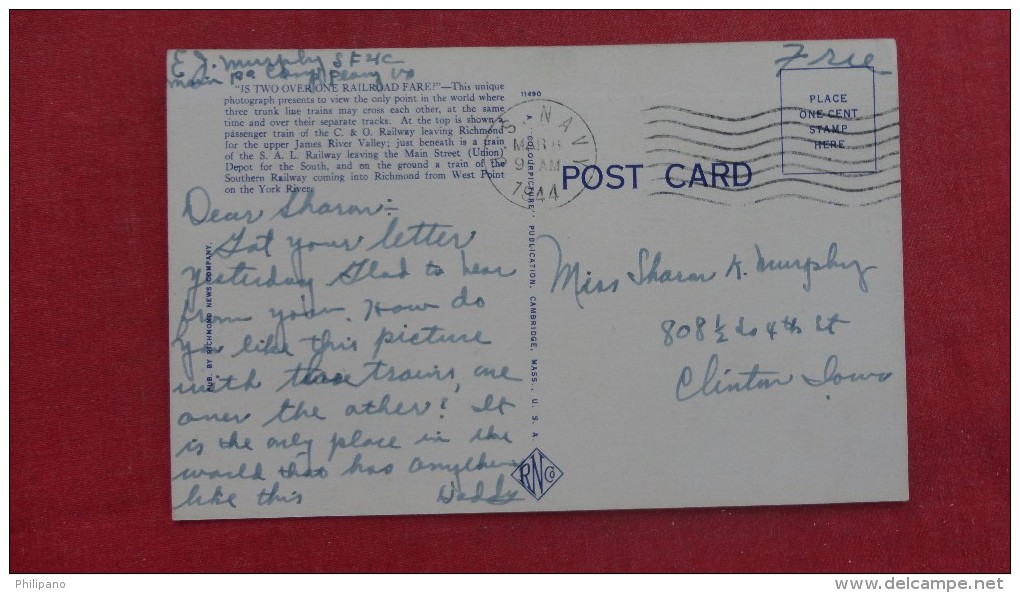 E J. Murphy SF4C
Camp Peary Va
Free
"IS TWO OVER ONE RAILROAD FARE?"—This unique
photograph presents to view the only point in the world where
three trunk line trains may cross each other, at the same
time and over their separate tracks. At the top is shown a
passenger train of the C. & O. Railway leaving Richmond
for the upper James River Valley; just beneath is a train
of the S. A. L. Railway leaving the Main Street (Union)
Depot for the South, and en the ground a train of the
Southern Railway coming into Richmond from West Point
on the York River.
Dear Sharon:-
Got your letter
yesterday Glad to hear
from you. How do
you like this picture
with trains, one
over the other? It
is the only place in the
world that has anything
like this Daddy
PUB. BY RICHMOND NEWS COMPANY,
11490
A "COLOURPICTURE" PUBLICATION, CAMBRIDGE, MASS., U. S. A.
RN Co
U. S. NAVY
MAR 8
9 AM
1944
POST CARD
PLACE
ONE CENT
STAMP
HERE
Miss Sharon K. Murphy
808 ½ So 4th St
Clinton Iowa
Philipano
www.delcampe.net